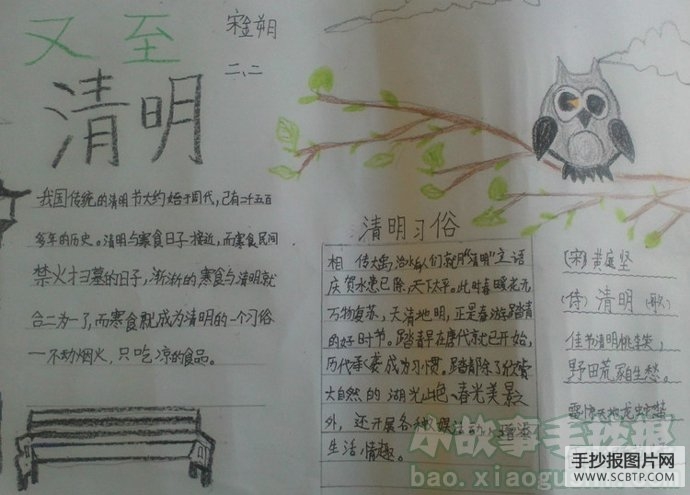 又至
清明
二、二
我国传统的清明节大约始于周代，已有二千五百
多年的历史。清明与寒食日子接近，而寒食民间
禁火扫墓的日子，渐渐的寒食与清明就
合二为一了，而寒食就成为清明的一个习俗
不动烟火，只吃凉的食品。
清明习俗
相传大禹治水后人们就用“清明”之语
庆贺水患已除，天下太平。此时春暖花开
万物复苏，天清地明，正是春游踏青
的好时节。踏青早在唐代就已开始，
历代承袭成为习惯。踏青除了欣赏
大自然的湖光山色、春光美景
外，还开展各种
生活情趣。
(宋)黄庭坚
(诗)清明
佳节清明桃李笑，
野田荒冢自生愁。
小故事手抄报
bao.xiaogu
手抄报图片网
WWW.SCBTP.COM